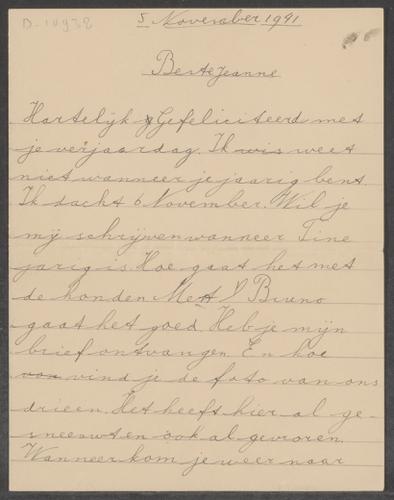 D-10938
5 November 1941
Beste Jeanne
Hartelijk Gefeliciteerd met
je verjaardag. Ik wis weet
niet wanneer je jaarig bent.
Ik dacht 6 November. Wil je
mij schrijven wanneer Tine
jarig is. Hoe gaat het met
de honden. Met Bruno
gaat het goed. Heb je mijn
brief ontvangen. En hoe
van vind je de foto van ons
drieen. Het heeft hier al ge-
sneeuwt en ook al gevroren.
Wanneer kom je weer naar